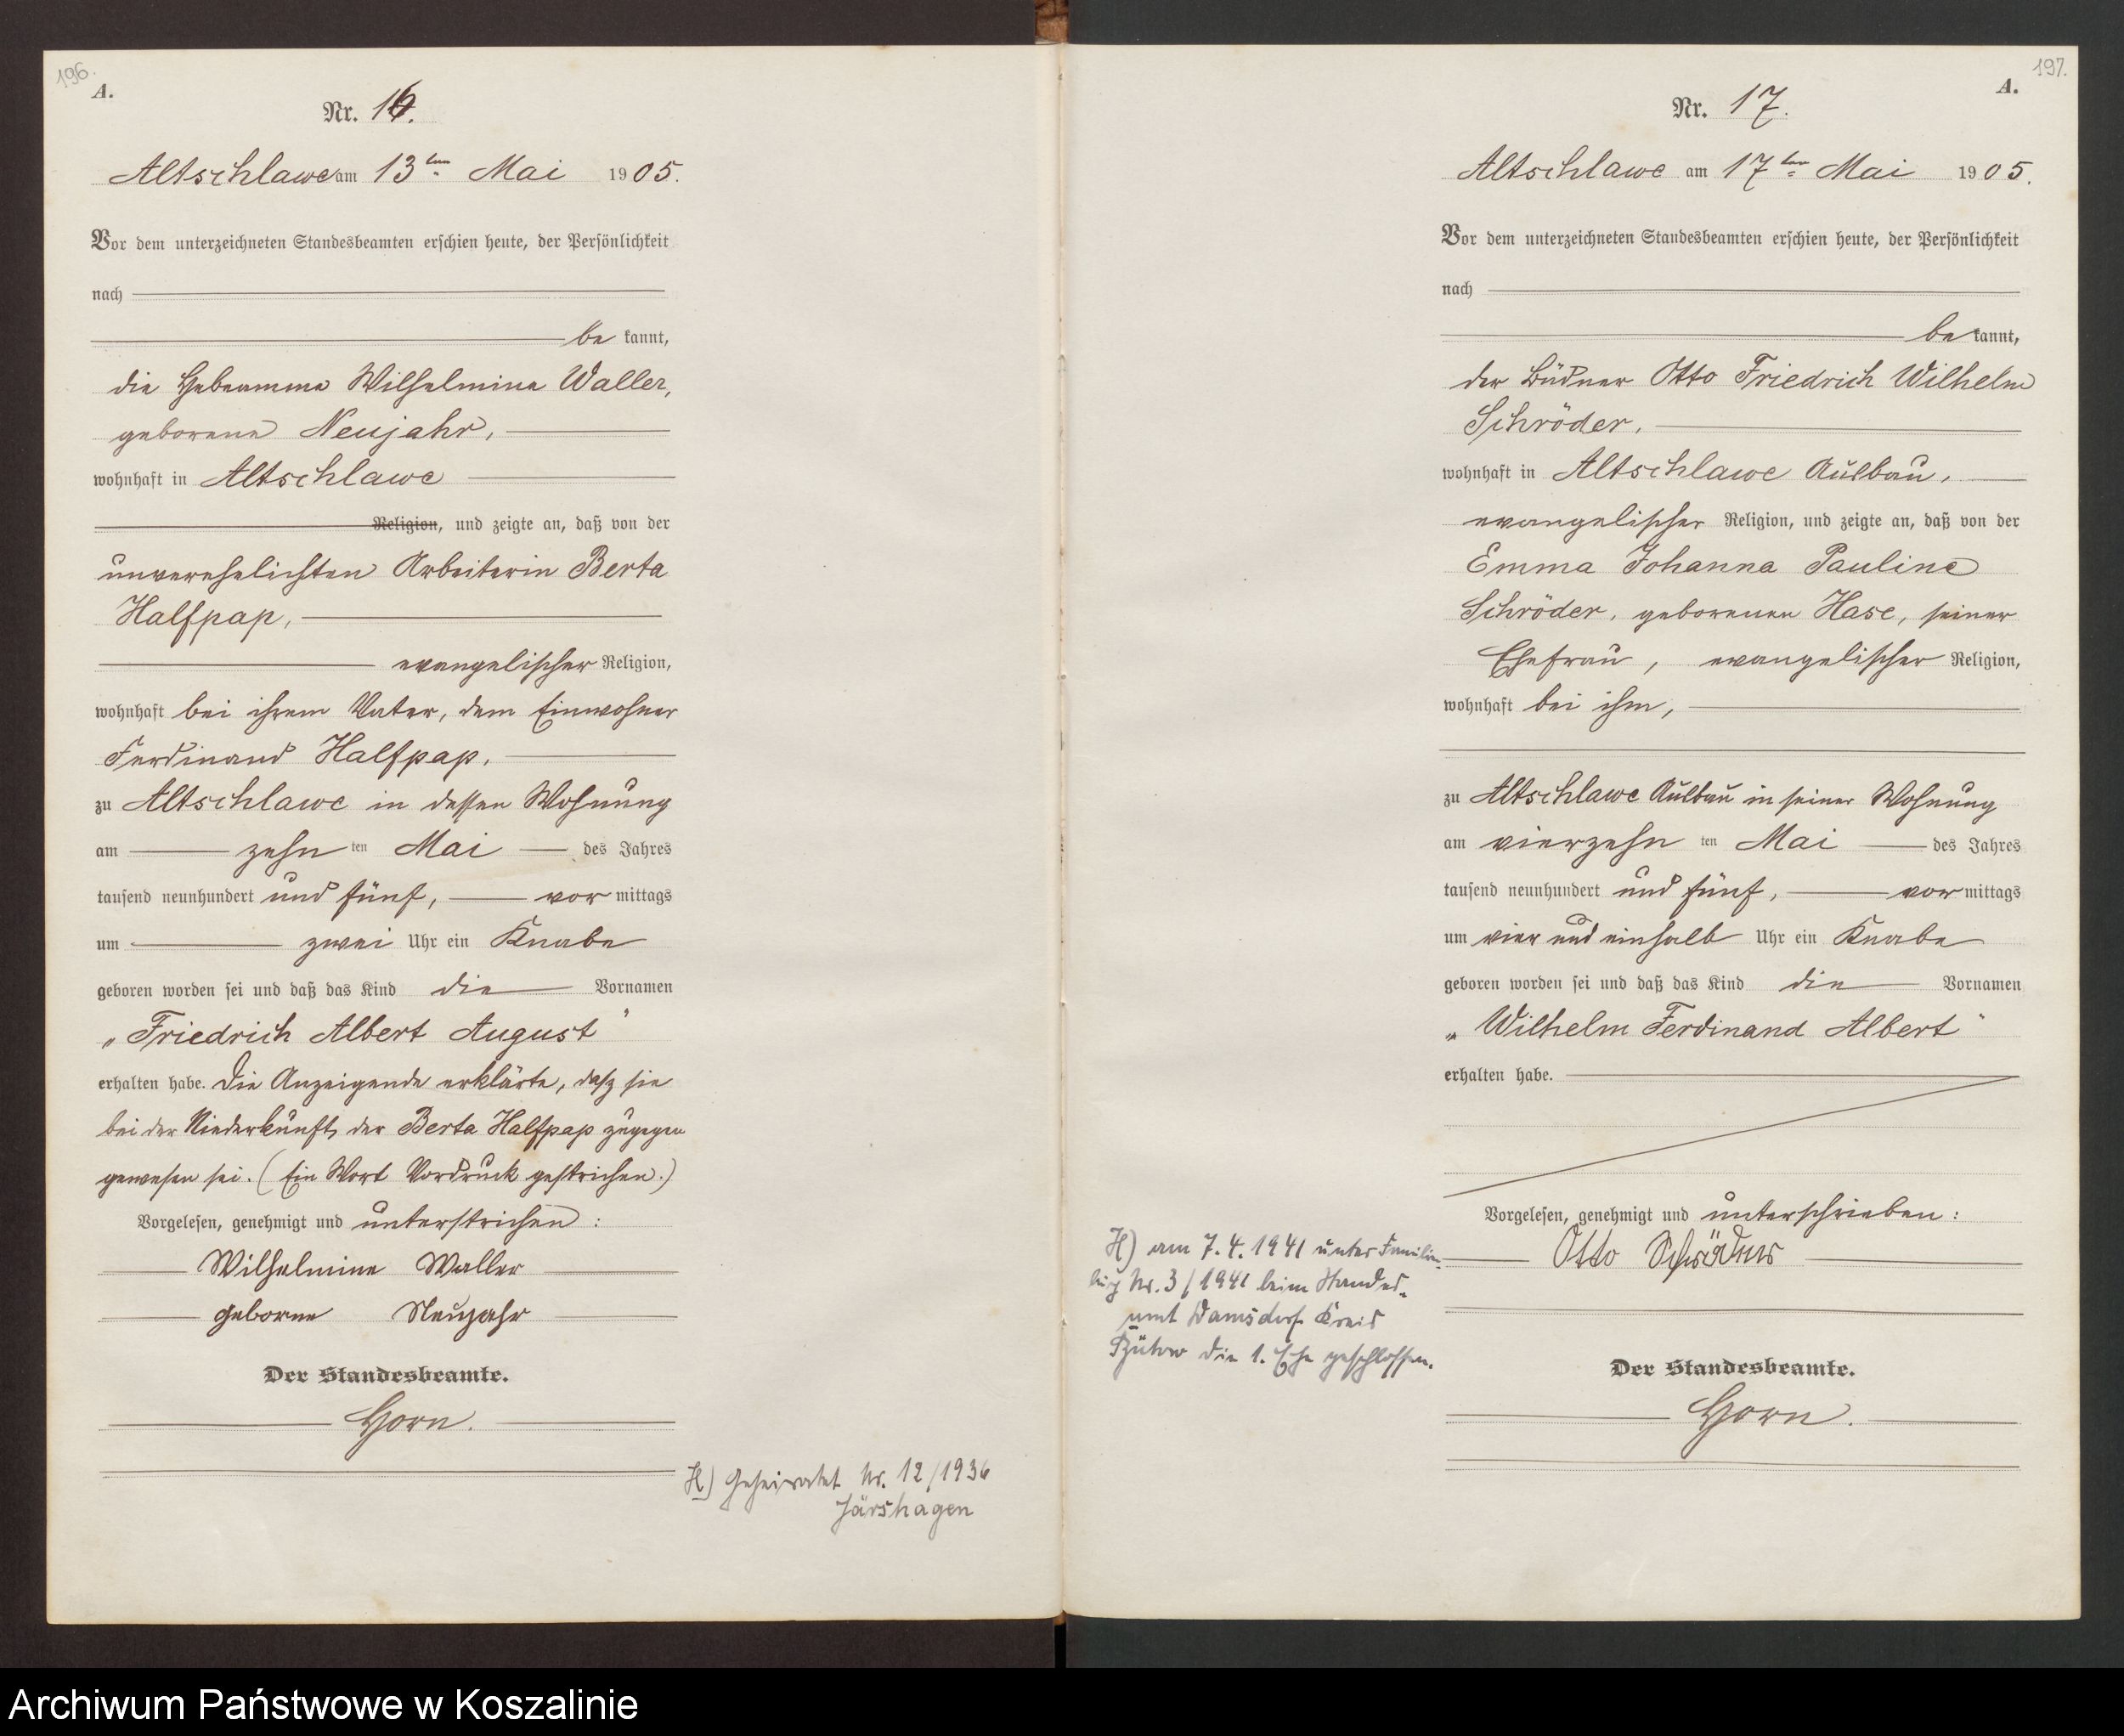 196.
A.
Nr. 16.
Altschlawe am 13ten Mai 1905.
Vor dem unterzeichneten Standesbeamten erschien heute, der Persönlichkeit
nach
be kannt,
die Hebeamme Wilhelmine Waller,
geborene Neujahr,
wohnhaft in Altschlawe
Religion, und zeigte an, daß von der
unverehelichten Arbeiterin Berta
Halfpap,
evangelischer Religion,
wohnhaft bei ihrem Vater, dem Einwohner
Ferdinand Halfpap,
zu Altschlawe in dessen Wohnung
am zehn ten Mai des Jahres
tausend neunhundert und fünf, vor mittags
um zwei Uhr ein Knabe
geboren worden sei und daß das Kind die Vornamen
„Friedrich Albert August"
erhalten habe. Die Anzeigende erklärte, daß sie
bei der Niederkunft der Berta Halfpap zugegen
gewesen sei. (Ein Wort Vordruck gestrichen.)
Vorgelesen, genehmigt und unterstrichen:
Wilhelmine Waller
geborne Neujahr
Der Standesbeamte.
Horn.
H) Geheiratet Nr. 12/1936
Järshagen
197.
A.
Nr. 17.
Altschlawe am 17ten Mai 1905.
Vor dem unterzeichneten Standesbeamten erschien heute, der Persönlichkeit
nach
be kannt,
der Büdner Otto Friedrich Wilhelm
Schröder,
wohnhaft in Altschlawe Ausbau,
evangelischer Religion, und zeigte an, daß von der
Emma Johanna Pauline
Schröder, geborenen Hase, seiner
Ehefrau, evangelischer Religion,
wohnhaft bei ihm,
zu Altschlawe Ausbau in seiner Wohnung
am vierzehn ten Mai des Jahres
tausend neunhundert und fünf, vor mittags
um vier und einhalb Uhr ein Knabe
geboren worden sei und daß das Kind die Vornamen
„Wilhelm Ferdinand Albert"
erhalten habe.
Vorgelesen, genehmigt und unterschrieben:
Otto Schröder
Der Standesbeamte.
Horn.
H) am 7.4.1941 unter Familien-
Nr. 3/1941 beim Standes-
amt Damsdorf Kreis
Bütow die 1. Ehe geschlossen.
Archiwum Państwowe w Koszalinie